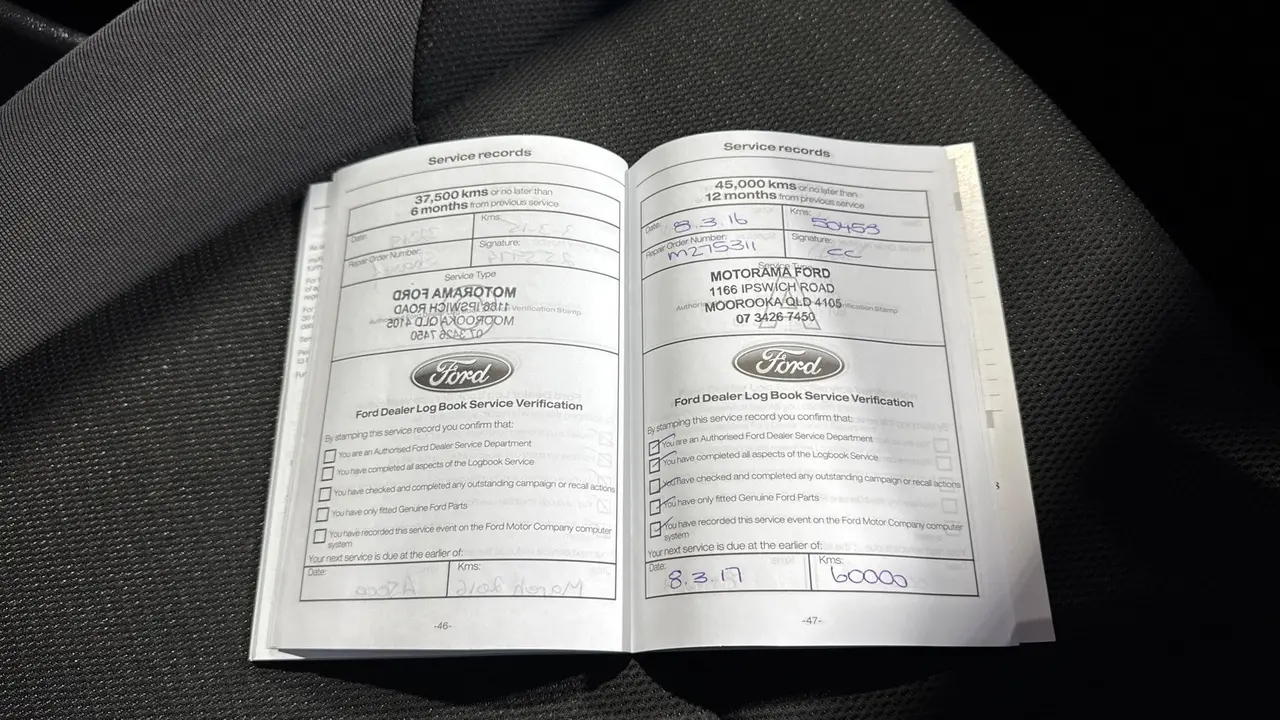 Service records
37,500 kms or no later than
6 months from previous service
Date:
Kms:
Repair Order Number:
Signature:
Service Type
MOTORAMA FORD
1166 IPSWICH ROAD
MOOROOKA QLD 4105
07 3426 7450
Ford
Ford Dealer Log Book Service Verification
By stamping this service record you confirm that:
You are an Authorised Ford Dealer Service Department
You have completed all aspects of the Logbook Service
You have checked and completed any outstanding campaign or recall actions
You have only fitted Genuine Ford Parts
You have recorded this service event on the Ford Motor Company computer
system
Your next service is due at the earlier of:
Date:
Kms:
March 2016
-46-
Service records
45,000 kms or no later than
12 months from previous service
Date: 8.3.16
Kms: 50453
Repair Order Number: M275311
Signature: CC
Service Type
MOTORAMA FORD
1166 IPSWICH ROAD
MOOROOKA QLD 4105
07 3426 7450
Ford
Ford Dealer Log Book Service Verification
By stamping this service record you confirm that:
You are an Authorised Ford Dealer Service Department
You have completed all aspects of the Logbook Service
You have checked and completed any outstanding campaign or recall actions
You have only fitted Genuine Ford Parts
You have recorded this service event on the Ford Motor Company computer
system
Your next service is due at the earlier of:
Date: 8.3.17
Kms: 60000
-47-